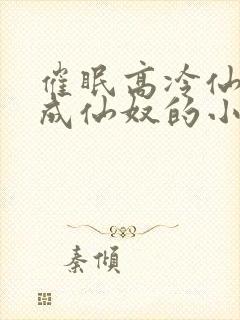 催眠高冷仙
成仙奴的小
秦倾